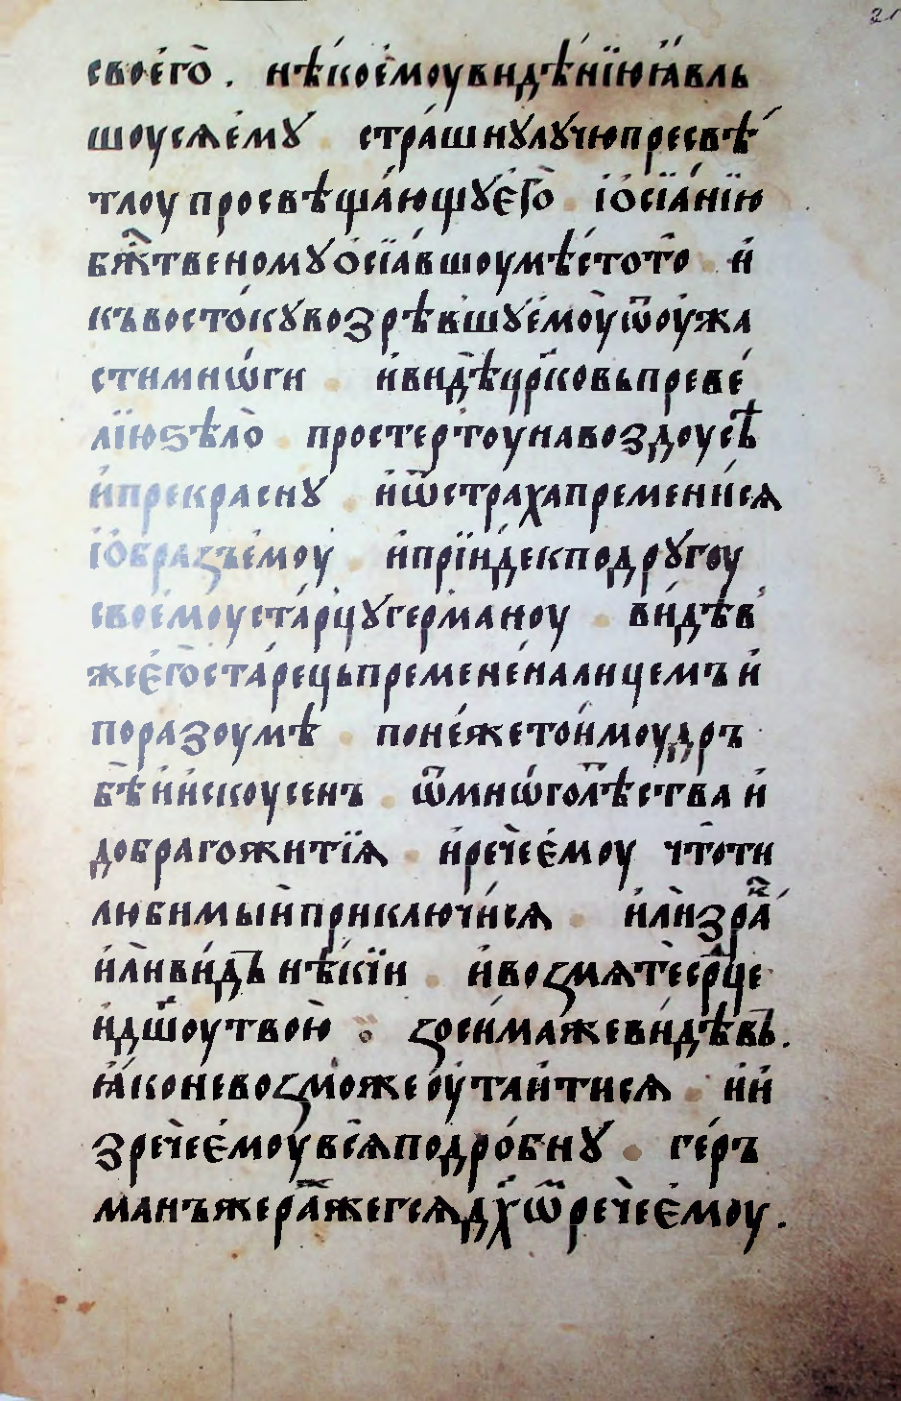 21
своего̀ . нѣ́коему видѣ́нїю ꙗ҆́вль
шоусѧ є҆мꙋ стра́шнꙋ лꙋчю пресвѣ́
тлоу просвѣща́ющꙋ є҆го̀ і҆ ѻ҆сїѧ́нїю
бжⷭ҇твеномꙋ ѻ҆сїа́вшоу мѣ́сто то̀ и҆
къ восто́кꙋ возрѣ́вшꙋ є҆моу̀ ѿ оу҆жа
сти мнѡ́ги и҆ видѣ̀ црⷦ҇овь преве́
лїю ѕѣло̀ простер́тоу на воздоусѣ̀
и҆ прекраснꙋ и҆ ѿ страха премени́сѧ
і҆ ѻ҆бразъ є҆моу̀ и҆ прїи́де к подрꙋгоу
своемоу ста́рцꙋ германоу ви́дѣв
же є҆го̀ ста́рець премене́на лицемъ и҆
поразоумѣ̀ поне́же то́и моудръ
бѣ̀ и҆ и҆скоусенъ ѿ мнѡ́голⷮѣства и҆
добраго житїѧ и҆ речѐ є҆моу что̀ ти
любимыи̇ приключи́сѧ и҆лѝ зра́кⷦ
и҆лѝ ви́дѣ нѣ́кїи и҆ воꙁмѧтѐ ср҃це
и҆ дш҃оу твою̀ ꙁоси́ма же ви́дѣвъ .
ꙗ҆́ко не воꙁмо́же оу҆таи́тисѧ и҆ и҆
зречѐ є҆моу всѧ̀ подро́бнꙋ ге́ръ
манъ же ражⷤегсѧ дх҃ѡⷨ речѐ є҆моу .